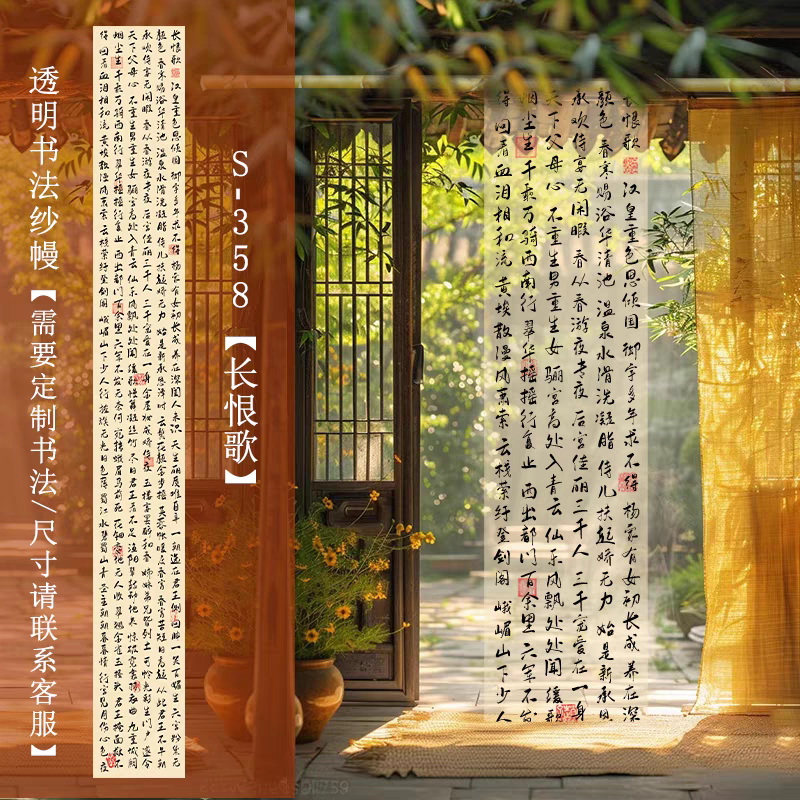 透明书法纱幔【需要定制书法/尺寸请联系客服】
长恨歌 汉皇重色思倾国 御宇多年求不得 杨家有女初长成 养在深闺人未识 天生丽质难自弃 一朝选在君王侧 回眸一笑百媚生 六宫粉黛无
颜色 春寒赐浴华清池 温泉水滑洗凝脂 侍儿扶起娇无力 始是新承恩泽时 云鬓花颜金步摇 芙蓉帐暖度春宵 春宵苦短日高起 从此君王不早朝
承欢侍宴无闲暇 春从春游夜专夜 后宫佳丽三千人 三千宠爱在一身 金屋妆成娇侍夜 玉楼宴罢醉和春 姊妹弟兄皆列土 可怜光彩生门户 遂令
天下父母心 不重生男重生女 骊宫高处入青云 仙乐风飘处处闻 缓歌慢舞凝丝竹 尽日君王看不足 渔阳鼙鼓动地来 惊破霓裳羽衣曲 九重城阙
烟尘生 千乘万骑西南行 翠华摇摇行复止 西出都门百余里 六军不发无奈何 宛转蛾眉马前死 花钿委地无人收 翠翘金雀玉搔头 君王掩面救不
得 回看血泪相和流 黄埃散漫风萧索 云栈萦纡登剑阁 峨嵋山下少人行 旌旗无光日色薄 蜀江水碧蜀山青 圣主朝朝暮暮情 行宫见月伤心色 夜
S-358【长恨歌】
长恨歌 汉皇重色思倾国 御宇多年求不得 杨家有女初长成 养在深
颜色 春寒赐浴华清池 温泉水滑洗凝脂 侍儿扶起娇无力 始是新承恩
承欢侍宴无闲暇 春从春游夜专夜 后宫佳丽三千人 三千宠爱在一身
天下父母心 不重生男重生女 骊宫高处入青云 仙乐风飘处处闻 缓歌
烟尘生 千乘万骑西南行 翠华摇摇行复止 西出都门百余里 六军不发
得 回看血泪相和流 黄埃散漫风萧索 云栈萦纡登剑阁 峨嵋山下少人